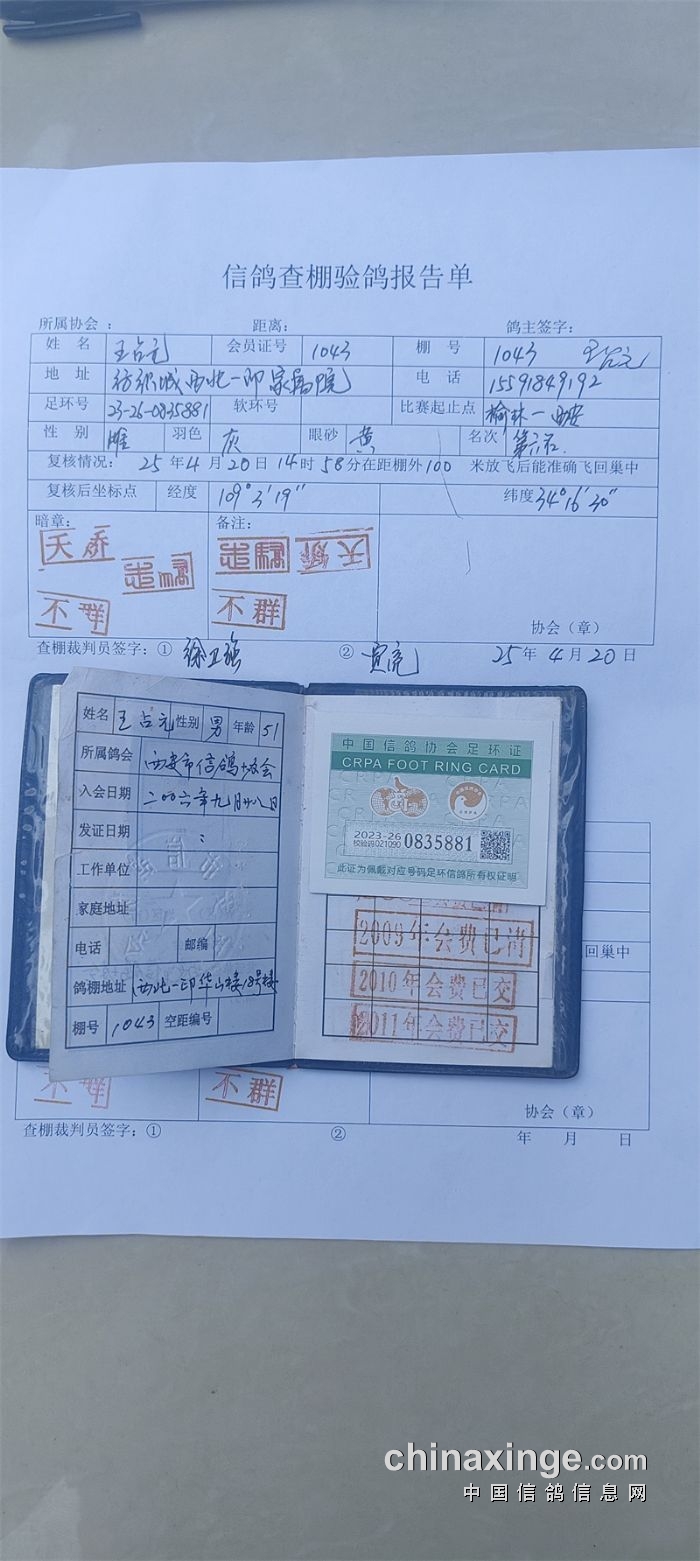 信鸽查棚验鸽报告单
所属协会： 距离： 鸽主签字：
姓 名 王占元 会员证号 1043 棚 号 1043 王占元
地 址 纺织城西北一印家属院 电 话 15591849192
足环号 23-26-0835881 软环号 比赛起止点 榆林—西安
性 别 雌 羽色 灰 眼砂 黄 名次 第六名
复核情况： 25 年 4 月 20 日 14 时 58 分在距棚外 100 米放飞后能准确飞回巢中
复核后坐标点 经度 109°3′19″ 纬度 34°16′30″
暗章： 备注：
天骄 天骄
不群 不群
协会（章）
查棚裁判员签字：① 徐卫强 ② 25 年 4 月 20 日
姓名 王占元 性别 男 年龄 51
所属鸽会 西安市信鸽协会
入会日期 二00六年九月廿八日
发证日期
工作单位
家庭地址
电话 邮编
鸽棚地址 西北一印华山楼18号楼
棚号 1043 空距编号
中国信鸽协会足环证
CRPA FOOT RING CARD
2023-26 0835881
校验码021090
此证为佩戴对应号码足环信鸽所有权证明
2009年会费已清
2010年会费已交
2011年会费已交
回巢中
不群 不群
协会（章）
查棚裁判员签字：① ② 年 月 日
chinaxinge.com
中国信鸽信息网